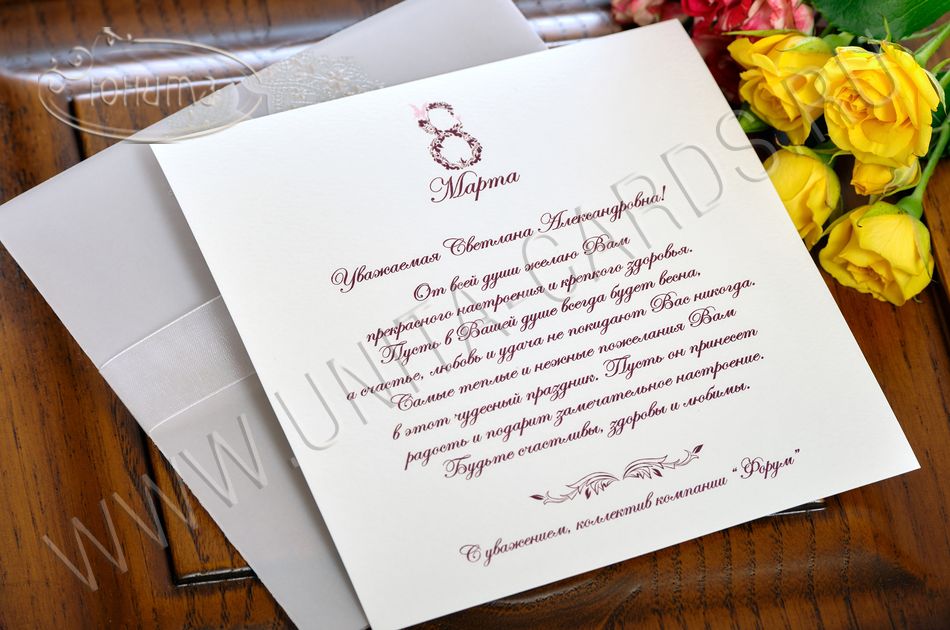 Юнита
8
Марта
Уважаемая Светлана Александровна!
От всей души желаю Вам
прекрасного настроения и крепкого здоровья.
Пусть в Вашей душе всегда будет весна,
а счастье, любовь и удача не покидают Вас никогда.
Самые теплые и нежные пожелания Вам
в этот чудесный праздник. Пусть он принесет
радость и подарит замечательное настроение.
Будьте счастливы, здоровы и любимы.
С уважением, коллектив компании “Форум”
WWW.UNITA.CARDS.RU